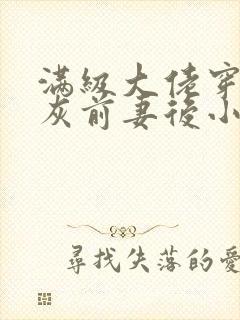 滿級大佬穿
灰前妻後小
尋找失落的愛